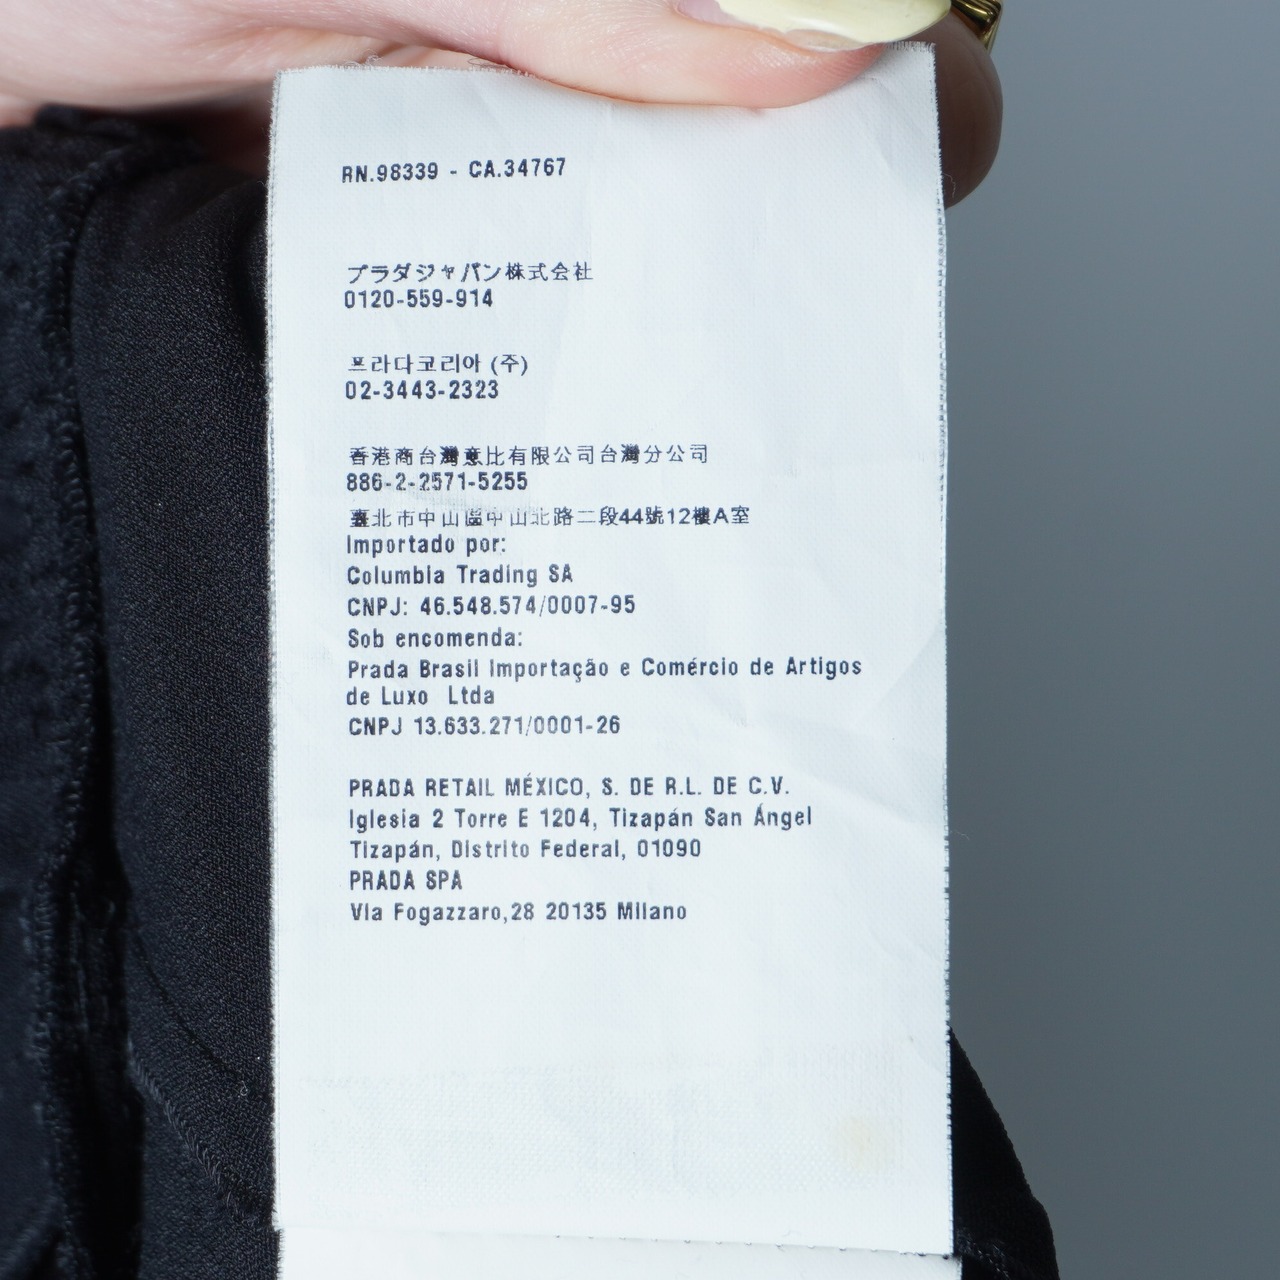 RN.98339 - CA.34767
プラダジャパン株式会社
0120-559-914
프라다코리아 (주)
02-3443-2323
香港商台灣意比有限公司台灣分公司
886-2-2571-5255
臺北市中山區中山北路二段44號12樓A室
Importado por:
Columbia Trading SA
CNPJ: 46.548.574/0007-95
Sob encomenda:
Prada Brasil Importação e Comércio de Artigos
de Luxo Ltda
CNPJ 13.633.271/0001-26
PRADA RETAIL MÉXICO, S. DE R.L. DE C.V.
Iglesia 2 Torre E 1204, Tizapán San Ángel
Tizapán, Distrito Federal, 01090
PRADA SPA
Via Fogazzaro,28 20135 Milano